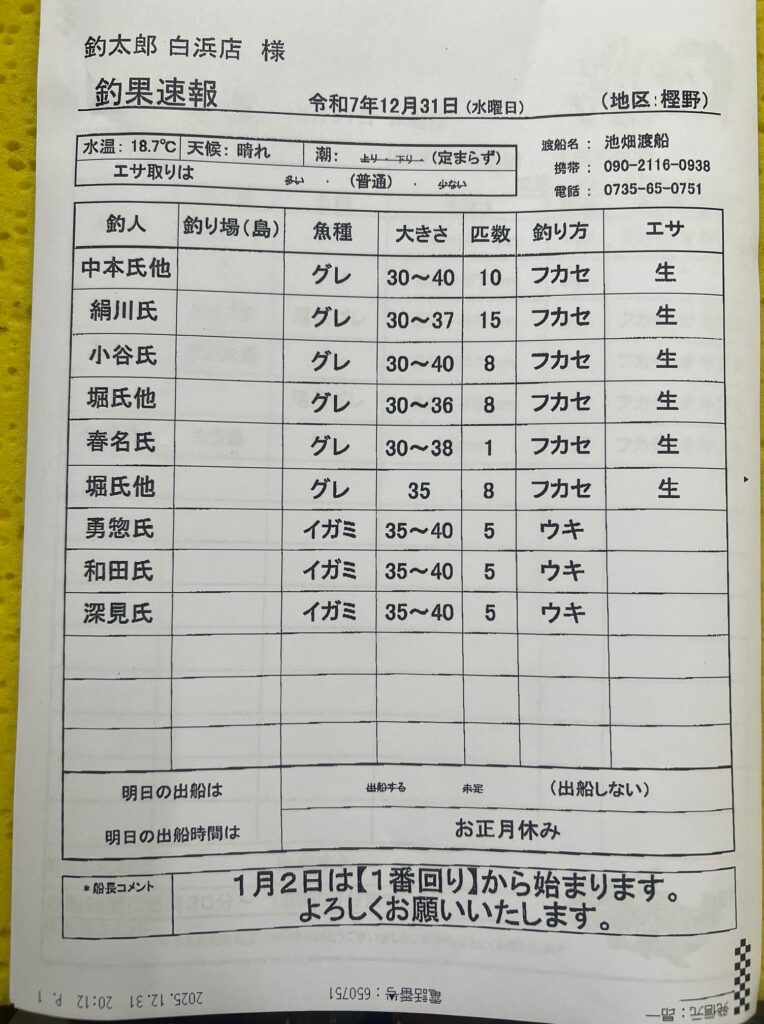 釣太郎 白浜店 様
釣果速報 令和7年12月31日(水曜日) (地区:樫野)
水温: 18.7℃ 天候: 晴れ 潮: 上り・下り・(定まらず)
エサ取りは 多い ・ (普通) ・ 少ない
渡船名 : 池畑渡船
携帯 : 090-2116-0938
電話 : 0735-65-0751
釣人 釣り場(島) 魚種 大きさ 匹数 釣り方 エサ
中本氏他 グレ 30〜40 10 フカセ 生
絹川氏 グレ 30〜37 15 フカセ 生
小谷氏 グレ 30〜40 8 フカセ 生
堀氏他 グレ 30〜36 8 フカセ 生
春名氏 グレ 30〜38 1 フカセ 生
堀氏他 グレ 35 8 フカセ 生
勇惣氏 イガミ 35〜40 5 ウキ
和田氏 イガミ 35〜40 5 ウキ
深見氏 イガミ 35〜40 5 ウキ
明日の出船は 出船する 未定 (出船しない)
明日の出船時間は お正月休み
*船長コメント 1月2日は【1番回り】から始まります。
よろしくお願いいたします。
発信元:昴一 電話番号:650751 2025.12.31 20:12 P. 1